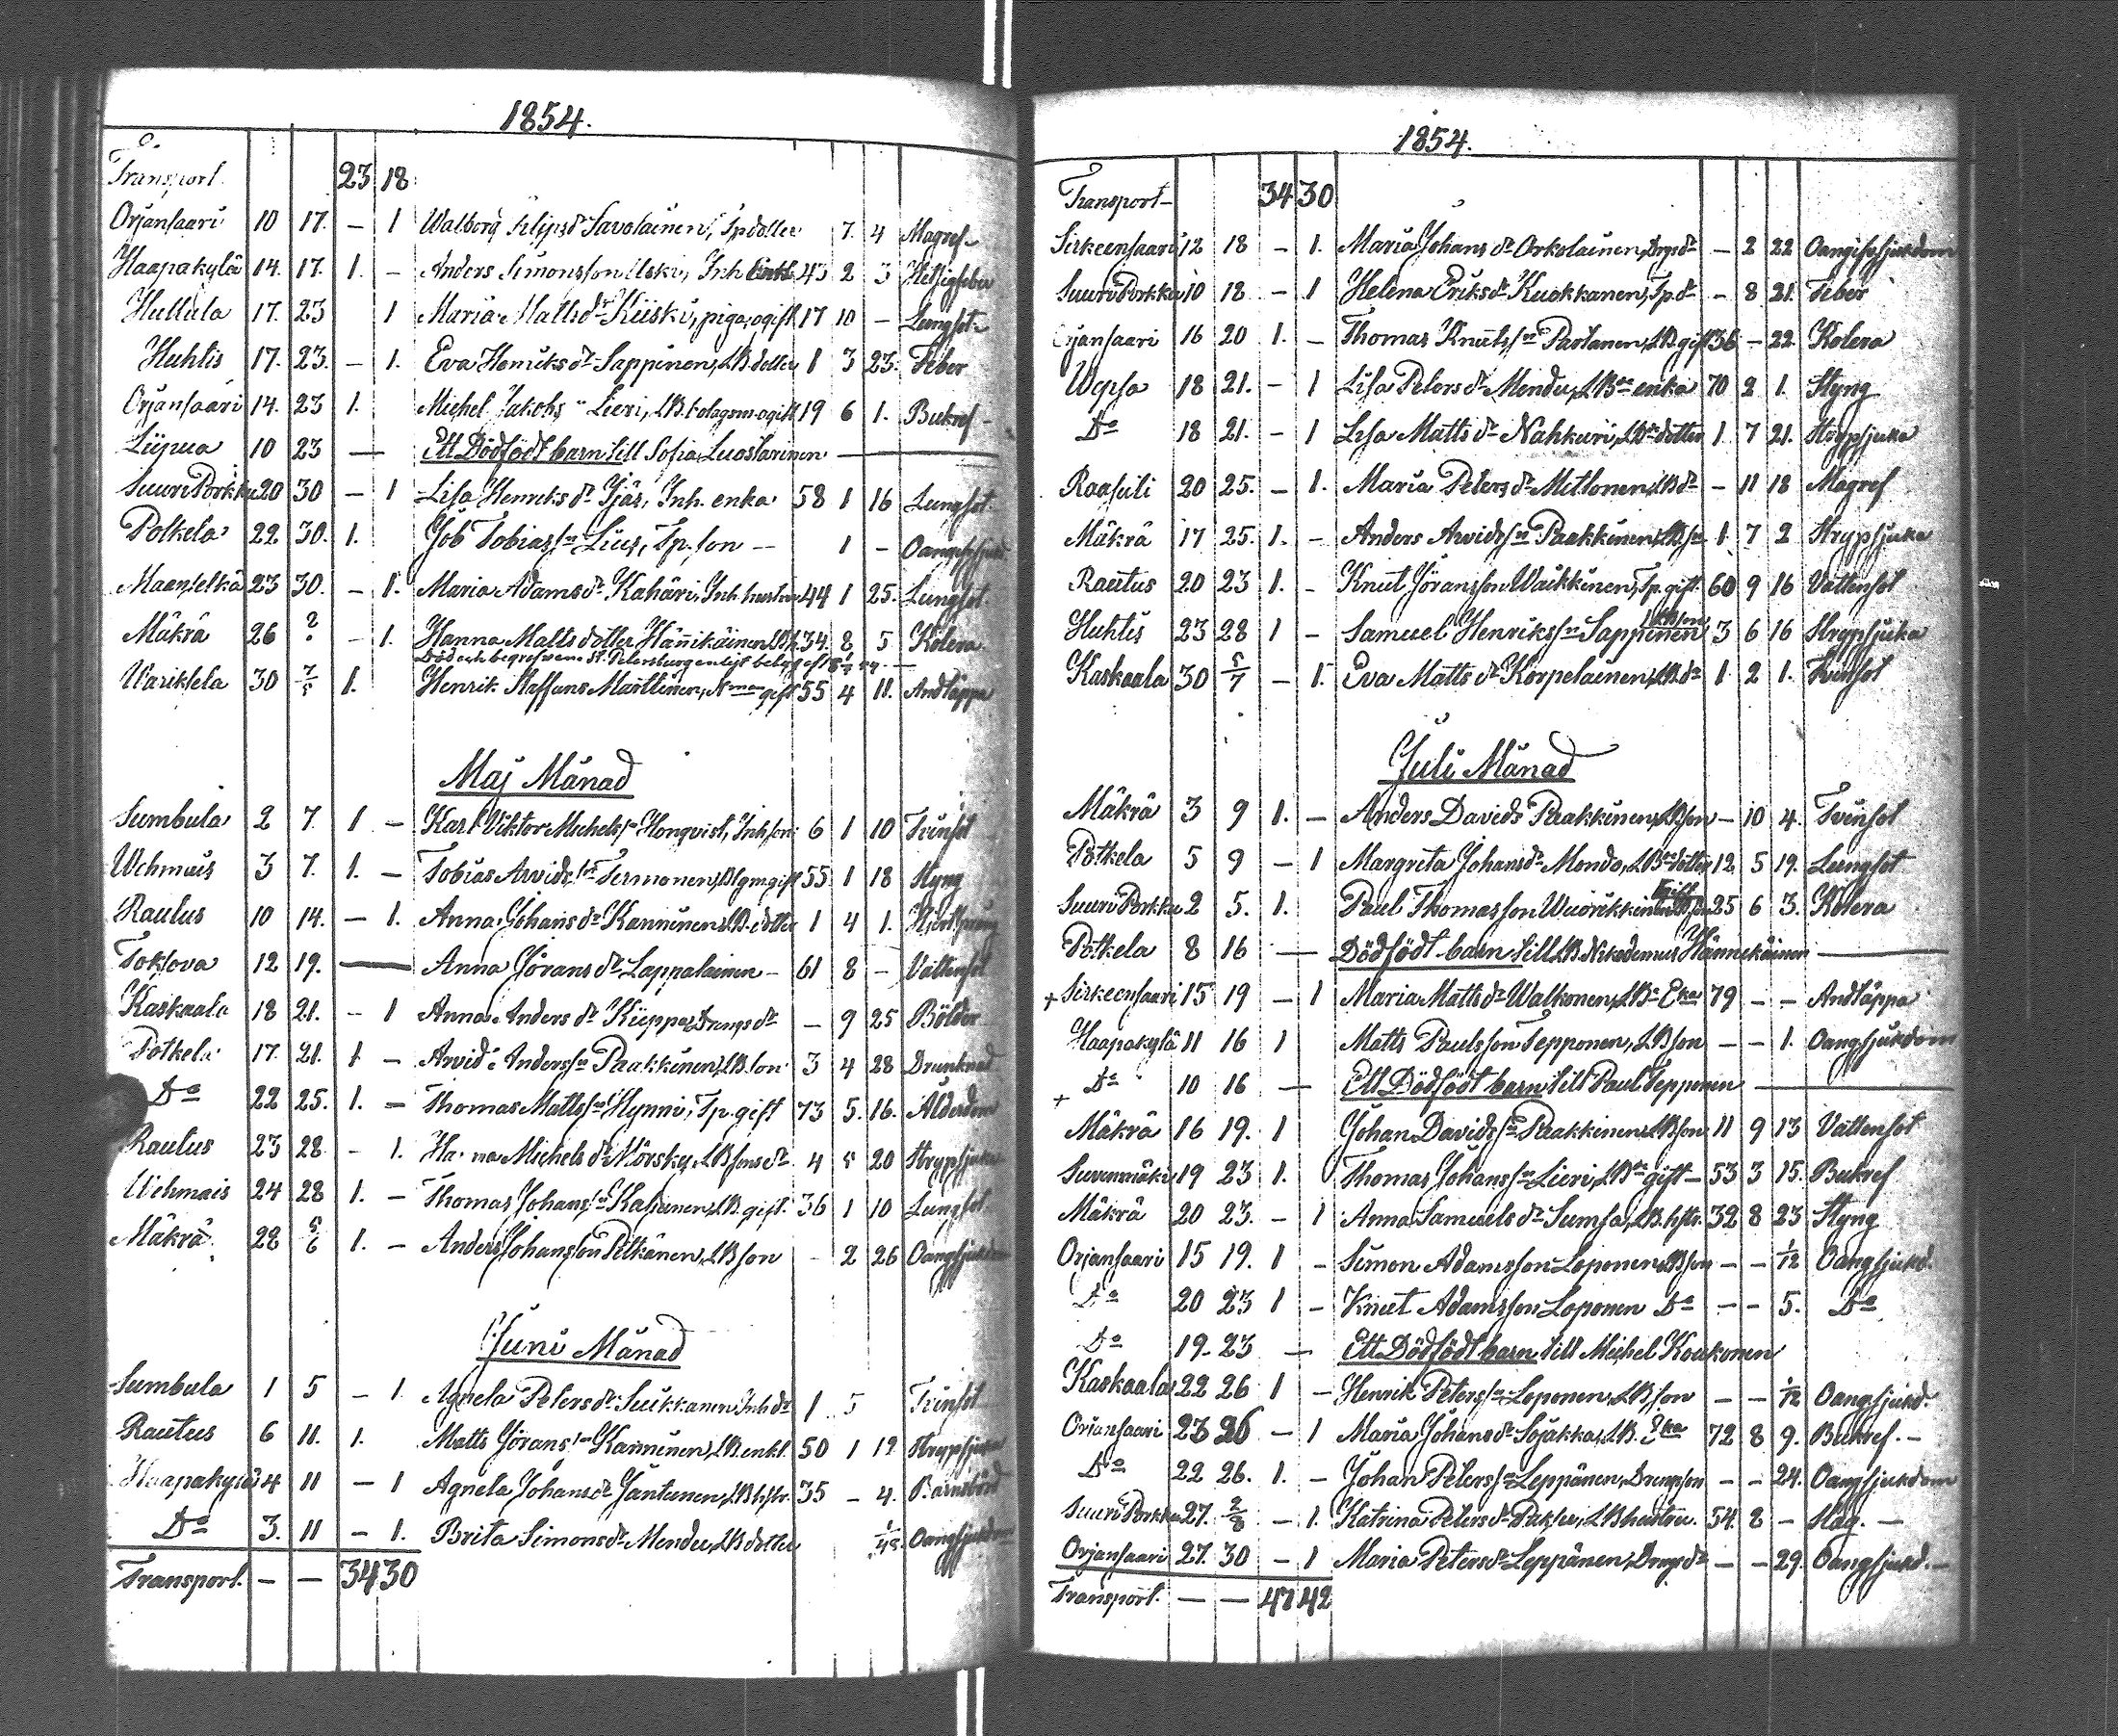 1854.
Transport. 23 18
Orjansaari 10 17. – 1 Walborg Filipsd:r Savolainen, Sp dotter 7. 4 Magref
Haapakylä 14. 17. 1. – Anders Simonsson Uski, Inh. Enkl. 43 2 3 Hetsigfeber
Hullula 17. 23 1 Maria Mattsd:r Kiiski, piga, ogift 17 10 – Lungsot
Huhtis 17. 23. – 1. Eva Henriksd:r Sappinen, LB. dotter 1 3 23. Feber
Orjansaari 14. 23 1. Michel Jakobs Lieri, LB. bolagsm. ogift 19 6 1. Bukref
Liipua 10 23 — Ett Dödfödt barn till Sofia Luostarinen —
SuuriPorkku 20 30 – 1 Lisa Henriksd:r Ijäs, Inh. enka 58 1 16 Lungsot
Potkela 22 30. 1. Job Tobiass:n Lius, Sp. son – 1 – Oangifvsjukd
Maanselkä 23 30. – 1. Maria Adamsd:r Kähäri, Inh. hustru 44 1 25. Lungsot
Mäkrä 26 ? – 1. Hanna Mattsdotter Hännikäinen 34. 8 5 Kolera
Död och begrafven i St. Petersburg enligt betyg af
Warikselä 30 7/5 1. Henrik Staffans Marttinen, gift 55 4 11. Andtäppa
Maj Månad
Sumbula 2 7. 1 – Karl Viktor Michelss:n Honqvist, Inh. son 6 1 10 Tvinsot
Wehmais 3 7. 1. – Tobias Arvidss:n Termonen, gift 55 1 18 Styng
Rautus 10 14. – 1. Anna Johansd:r Kanninen, LB. dotter 1 4 1.
Toksova 12 19. — Anna Göransd:r Lappalainen – 61 8 – Vattensot
Kaskaala 18 21. – 1 Anna Andersd:r Kiippa, Drengsd:r – 9 25 Bölder
Potkela 17. 21. 1 – Arvid Anderss:n Paakkinen, LB. son 3 4 28 Drunknad
D:o 22 25. 1. – Thomas Mattss:n Hynni, Sp. gift 73 5. 16. Ålderdom
Rautus 23 28 – 1. Hanna Michelsd:r Mörsky, LBsonsd:r 4 5 20 Strypsjuka
Wehmais 24 28 1. – Thomas Johanss:n Kahanen, LB. gift. 36 1 10 Lungsot
Mäkrä 28 5/6 1. – Anders Johansson Pitkänen, LBson – 2 26 Oangsjukdom
Juni Månad
Sumbula 1 5 – 1 Agneta Petersd:r Suikkanen Inhd:r 1 5 Tvinsot
Rautus 6 11. 1. Matts Görans:n Kanninen, LB. enkl. 50 1 12 Strypsjuka
Haapakylä 4 11 – 1 Agneta Johansd:r Jantunen, LBhstr. 35 – 4. Barnsbörd
D:o 3. 11 – 1. Brita Simonsd:r Mendu, LBdotter 1/48. Oangsjukdom
Transport. – – 34 30
1854.
Transport 34 30
Sirkeensaari 12 18 – 1. Maria Johansd:r Orkolainen, Drgsd:r – 2 22 Oangifvsjukdom
SuuriPorkku 10 18 – 1 Helena Eriksd:r Kuokkanen, Sp. d:r – 8 21. Feber
Orjansaari 16 20 1. – Thomas Knutss:n Partanen, LB. gift 36 – 22. Kolera
Wepsa 18 21. – 1 Lisa Petersd:r Mendu, LB:s enka 70 2 1. Styng
D:o 18 21. – 1 Lisa Mattsd:r Nahkuri, LB:s dotter 1. 7 21. Strypsjuka
Raasuli 20 25. – 1. Maria Petersd:r Mittonen, LBd:r – 11 18 Magref
Mäkrä 17 25. 1. – Anders Arvidss:n Paakkinen, LBs:n 1. 7 2 Strypsjuka
Rautus 20 23 1. – Knut Göransson Waikkinen, Sp. gift. 60 9 16 Vattensot
Huhtis 23 28 1 – Samuel Henrikss:n Sappinen LBson 3 6 16 Strypsjuka
Kaskaala 30 5/7 – 1. Eva Mattsd:r Korpelainen, LBd:r 1 2 1. Tvinsot
Juli Månad
Mäkrä 3 9 1. – Anders Davids Paakkinen, LBson – 10 4. Tvinsot
Potkela 5 9 – 1 Margreta Johansd:r Mondo, LB:s dotter 12 5 19. Lungsot
SuuriPorkku 2 5. 1. Paul Thomasson Wuorikkinen gift 25 6 3. Kolera
Potkela 8 16 — Dödfödt barn till LB. Nikodemus Hännikäinen —
+ Sirkeensaari 15 19 – 1 Maria Mattsd:r Walkonen, LB:s Eka 79 – – Andtäppa
Haapakylä 11 16 1 Matts Paulsson Tepponen, LBson – – 1. Oangsjukdom
+ D:o 10 16 — Ett Dödfödt barn till Paul Tepponen —
Mäkrä 16 19. 1 Johan Davidss:n Paakkinen, LBson 11 9 13 Vattensot
Suvenmäki 19 23 1. Thomas Johanss:n Lieri, LB:s gift – 53 3 15. Bukref
Mäkrä 20 23. – 1 Anna Samuelsd:r Sumsa, LB. hstr. 32 8 23 Styng
Orjansaari 15 19. 1 – Simon Adamsson Loponen LBson – – 1/12 Oangsjukd.
D:o 20 23 1 – Knut Adamsson Loponen D:o – – 5. D:o
D:o 19. 23 – Ett Dödfödt barn till Michel Koukonen
Kaskaala 22 26 1 – Henrik Peterss:n Loponen, LBson – – 1/12 Oangsjukd.
Orjansaari 23 26 – 1 Maria Johansd:r Sojakka, LB. Eka 72 8 9. Bukref. –
D:o 22 26. 1. – Johan Peterss:n Leppänen, Drengson – – 24. Oangsjukdom
SuuriPorkku 27. 2/8 – 1. Katrina Petersd:r Paksu, LBhustru. 54. 8 – Håg. –
Orjansaari 27. 30 – 1 Maria Petersd:r Leppänen, Drngsd:r – – 29. Oangsjukd. –
Transport. – – 47 42